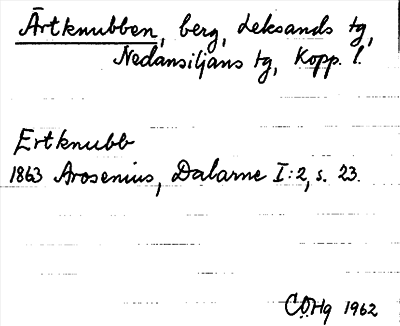 Ärtknubben, berg, Leksands tg,
Nedansiljans tg, Kopp. l.
Ertknubb
1863 Arosenius, Dalarne I:2, s. 23.
COHg 1962